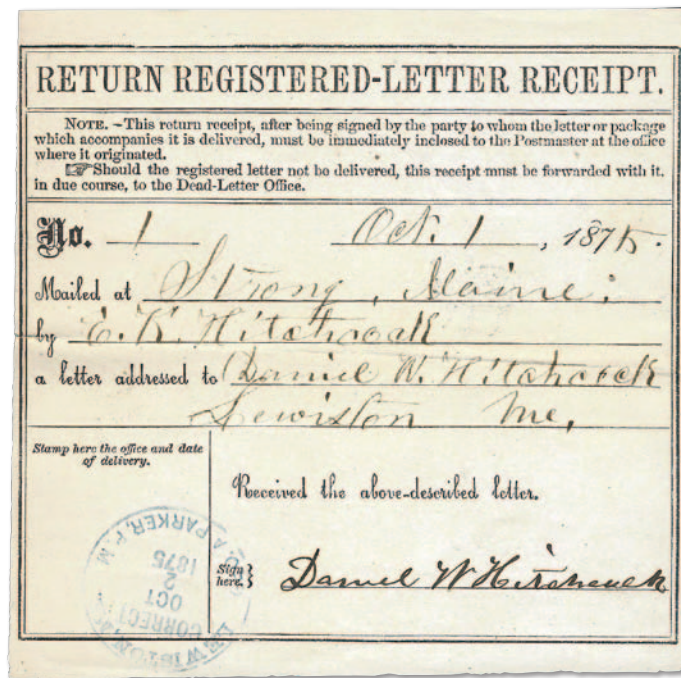 RETURN REGISTERED-LETTER RECEIPT.
NOTE. –This return receipt, after being signed by the party to whom the letter or package
which accompanies it is delivered, must be immediately inclosed to the Postmaster at the office
where it originated.
☞Should the registered letter not be delivered, this receipt must be forwarded with it.
in due course, to the Dead-Letter Office.
No. 1 Oct. 1, 1875.
Mailed at Strong, Maine.
by E. K. Hitchcock
a letter addressed to Daniel W. Hitchcock
Lewiston Me,
Stamp here the office and date
of delivery.
Received the above-described letter.
Sign
here.
Daniel W Hitchcock
A PARKER, P. M
CORRECT
OCT
2
1875
LEWISTON